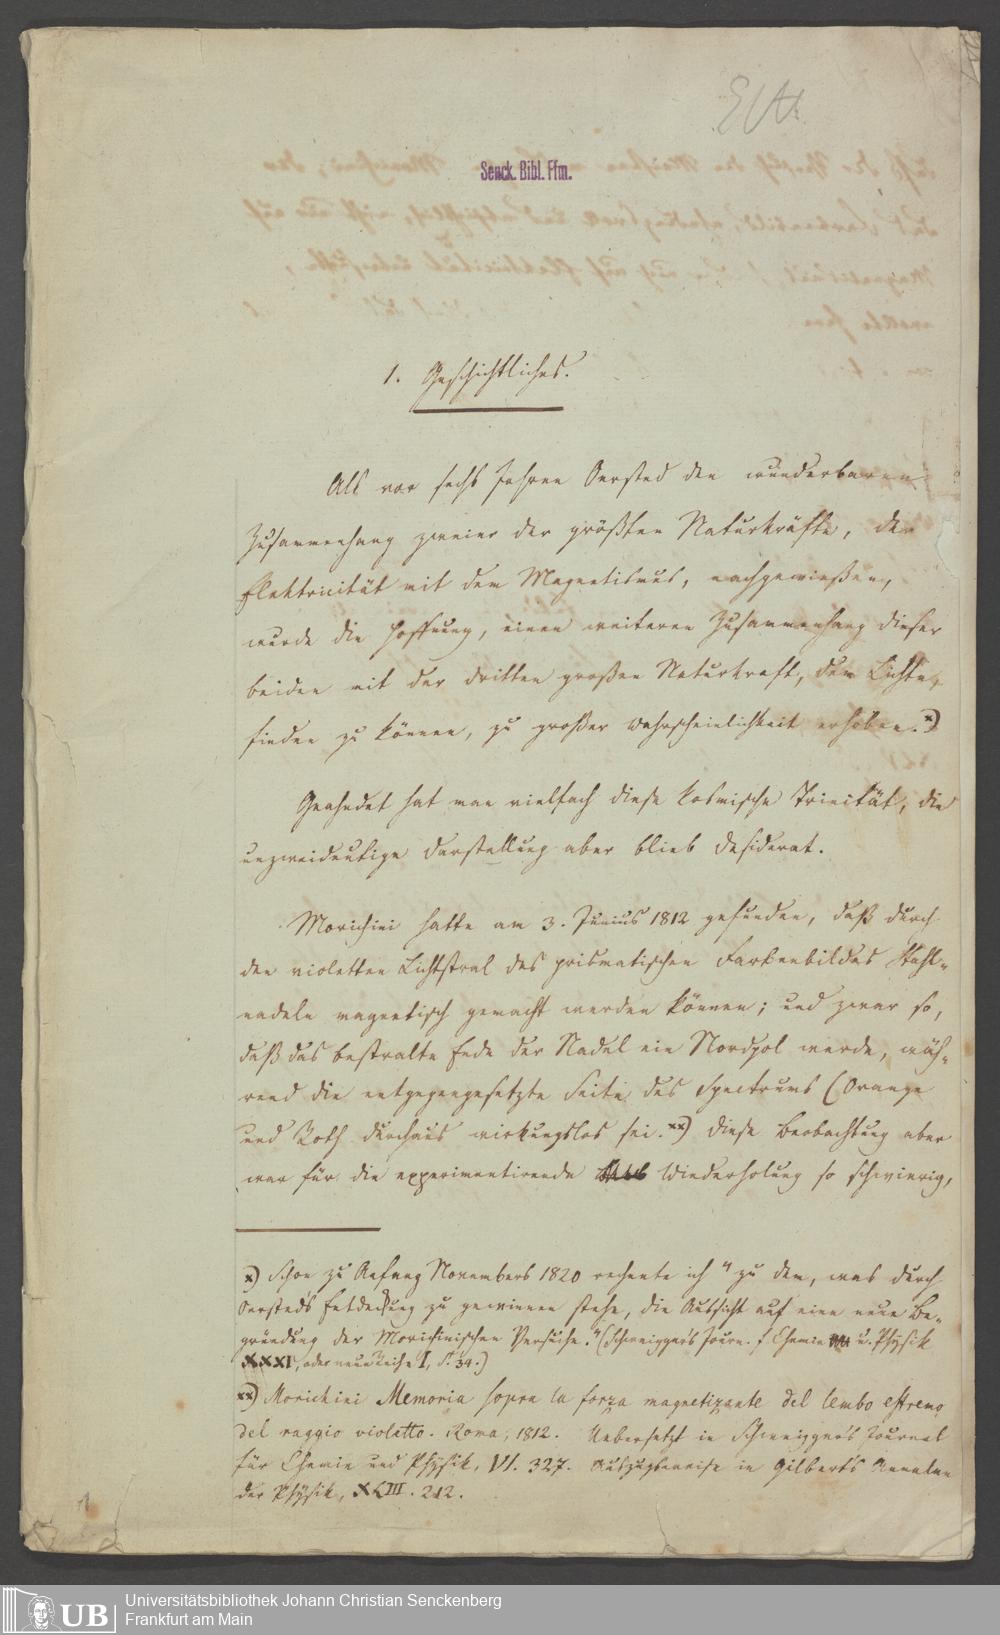 Senck. Bibl. Ffm.
1. Geschichtliches.
Als vor sechs Jahren Oersted den wunderbaren
Zusammenhang zweier der größten Naturkräfte, der
Elektricität mit dem Magnetismus, nachgewießen,
wurde die Hoffnung, einen weiteren Zusammenhang dieser
beiden mit der dritten großen Naturkraft, dem Lichte,
finden zu können, zu großer Wahrscheinlichkeit erhoben.*)
Geahndet hat man vielfach diese kosmische Trinität, die
unzweideutige Darstellung aber blieb desiderat.
Morichini hatte am 3. Junius 1812 gefunden, daß durch
den violetten Lichtstral des prismatischen Farbenbildes Stahl-
nadeln magnetisch gemacht werden können; und zwar so,
daß das bestralte Ende der Nadel ein Nordpol werde, wäh-
rend die entgegengesetzte Seite des Spectrums (Orange
und Roth durchaus wirkungslos sei.**) Diese Beobachtung aber
war für die experimentirende Wiederholung so schwierig,
*) Schon zu Anfang Novembers 1820 rechnete ich "zu dem, was durch
Oersted's Entdeckung zu gewinnen stehe, die Aussicht auf eine neue Be-
gründung der Morichinischen Versuche." (Schweigger's Journ. f Chemie u. Physik
XXXI, oder neue Reihe I, S. 34.)
**) Morichini Memoria sopra la forza magnetizante del lembo estremo
del raggio violetto. Roma, 1812. Uebersetzt in Schweigger's Journal
für Chemie und Physik, VI. 327. Auszugsweise in Gilbert's Annalen
der Physik, XLIII. 212.
1
UB
Universitätsbibliothek Johann Christian Senckenberg
Frankfurt am Main